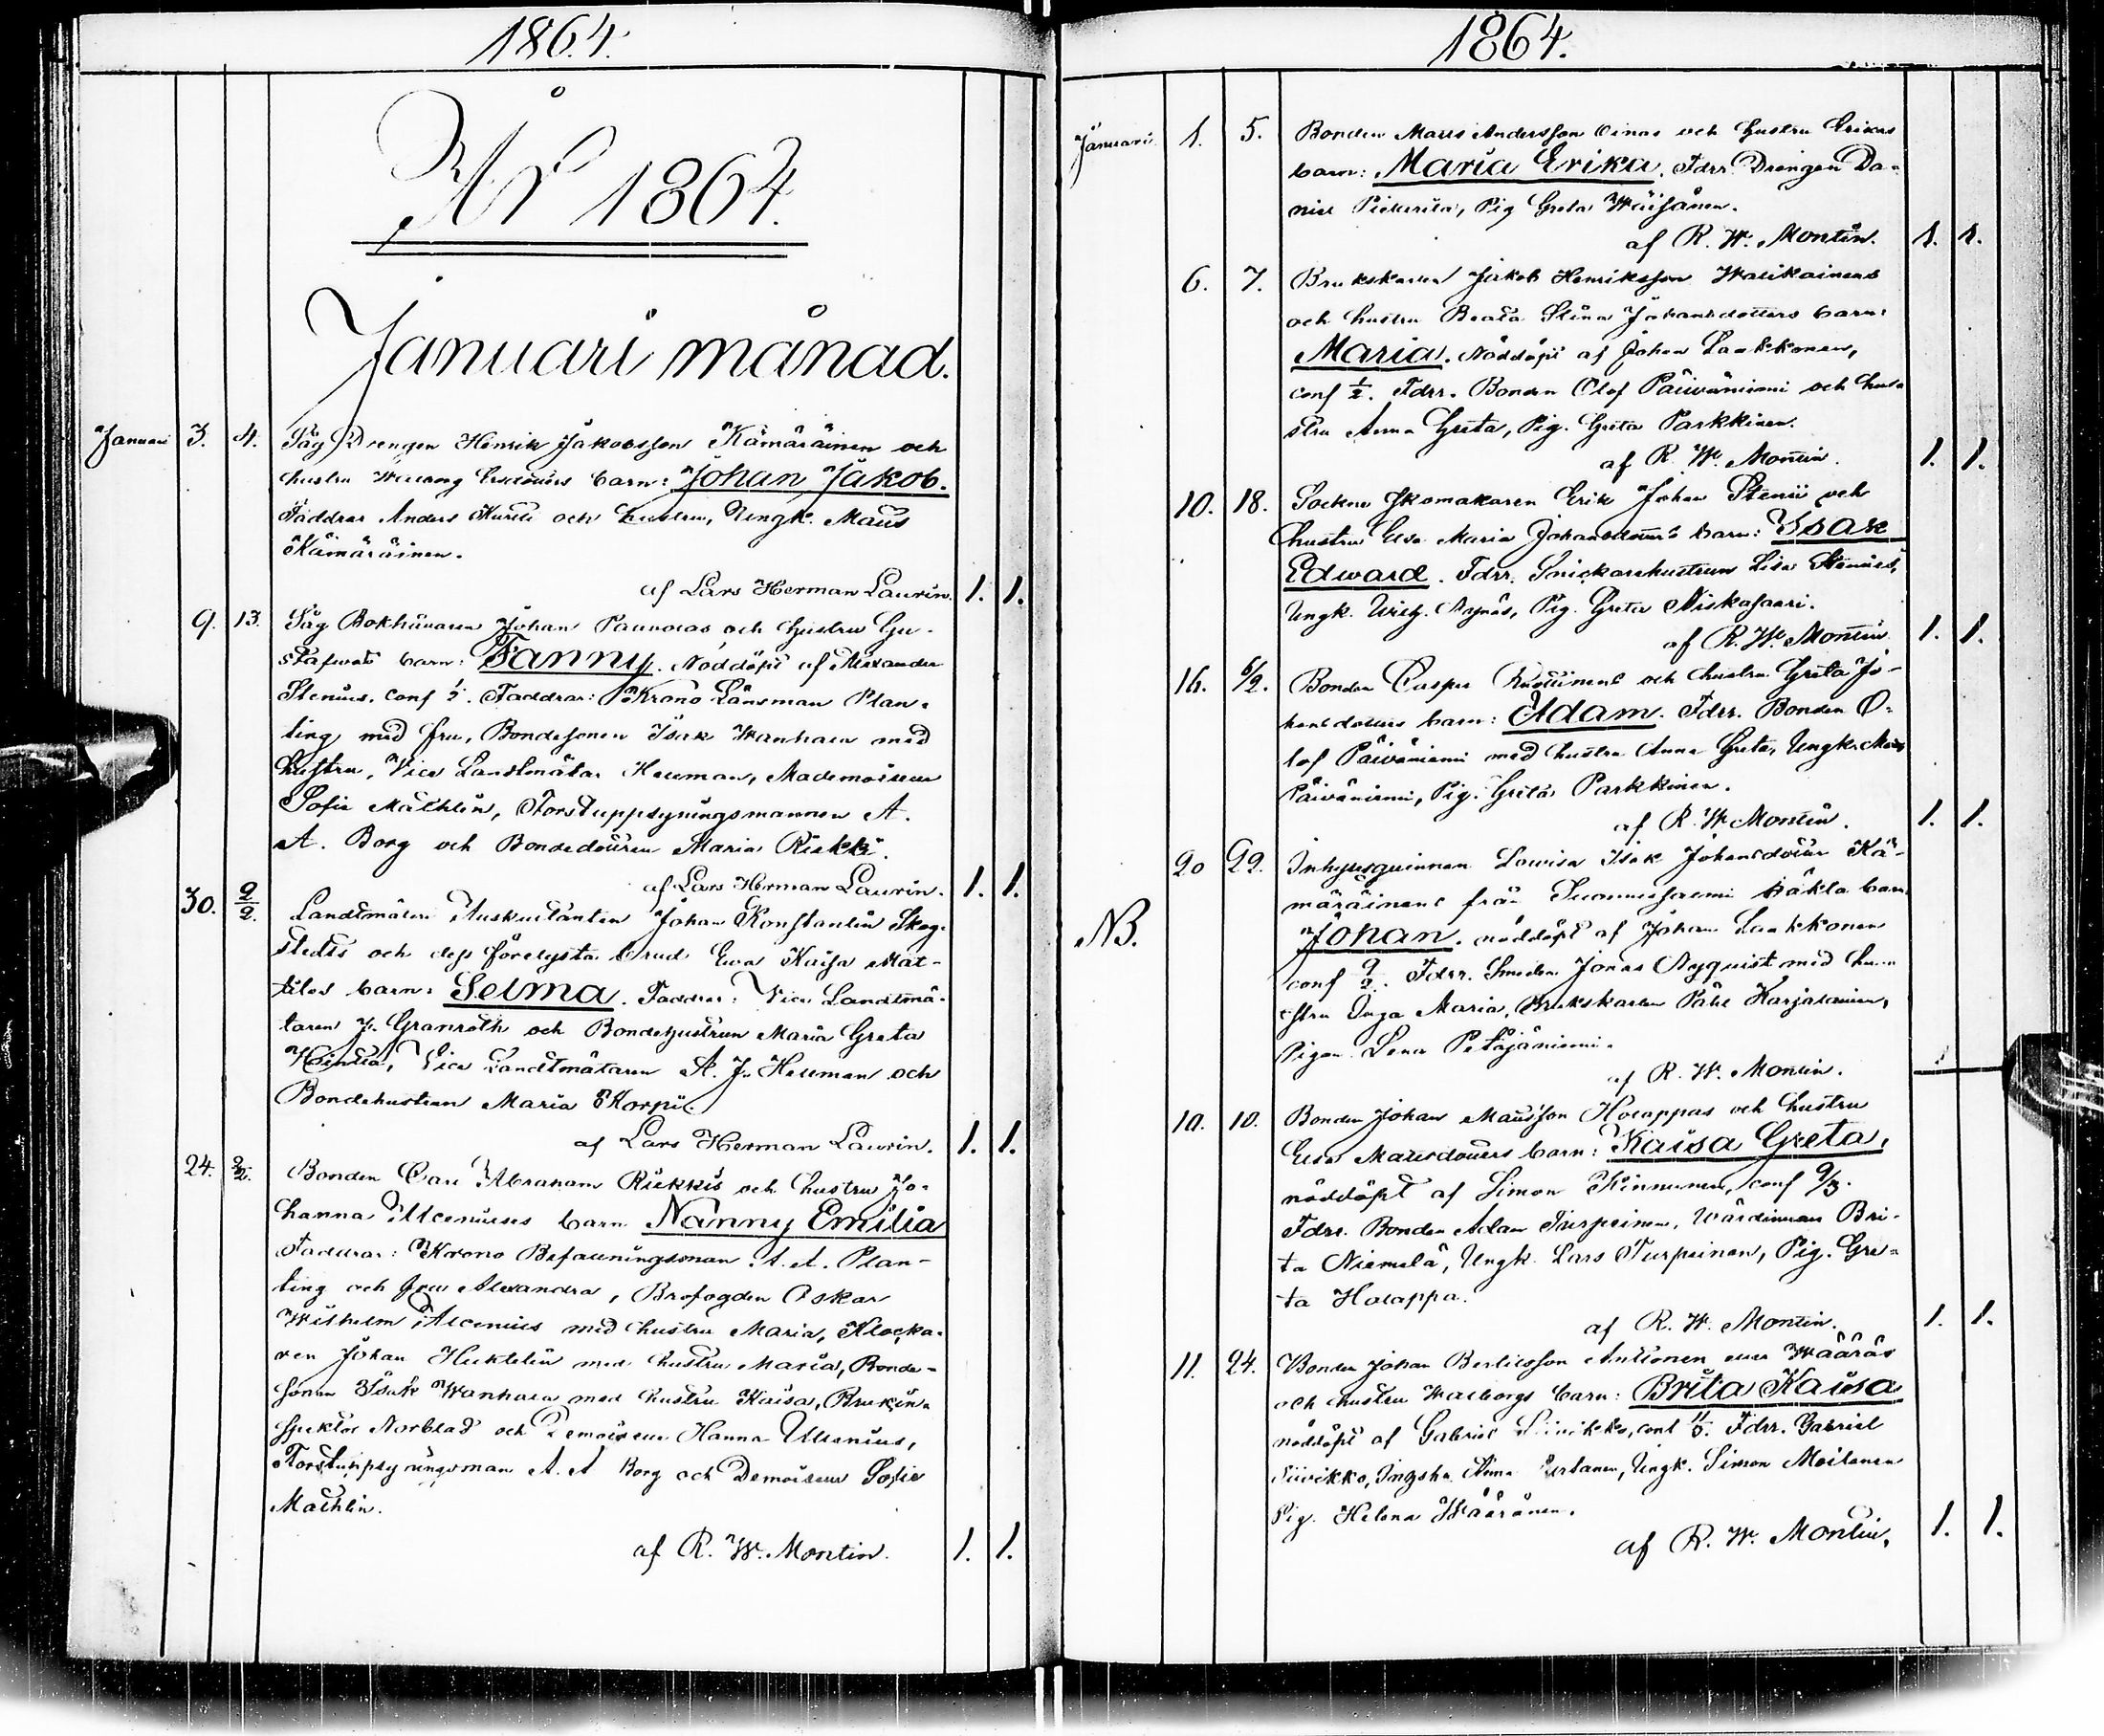 1864.
År 1864.
Januari månad.
Januari 3. 4. Såg Drengen Henrik Jakobsson Kämäräinen och
hustru barn: Johan Jakob.
Faddrar Anders och hustru, Ungk. Mats
Kämäräinen.
af Lars Herman Laurin. 1. 1.
9. 13. Såg Bokhållaren Johan och hustru Gu-
stafwas barn: Fanny. Nöddöpt af Alexander
Stenius. conf ½. Faddrar: Krono Länsman Plan-
ting med fru, Bondesonen Isak Wanhala med
hustru, Vice Landtmätar Heuman, Mademoisell
Sofie Mathlin, Forstuppsyningsmannen A.
A. Borg och Bondedottren Maria Riekki.
af Lars Herman Laurin. 1. 1.
30. 2/2. Landtmäteri Auskultanten Johan Konstantin Skog-
stedts och dess förelysta brud Ewa Kaisa Mat-
tilas barn: Selma. Faddrar: Vice Landtmä-
taren J. Granroth och Bondehustrun Maria Greta
Heintla, Vice Landtmätaren A. J. Heuman och
Bondehustrun Maria Korpi.
af Lars Herman Laurin. 1. 1.
24. 2/2. Bonden Carl Abraham Riekkis och hustru Jo-
hanna barn Nanny Emilia
Faddrar: Krono Befallningsman A. A. Plan-
ting och fru Alexandra, Brofogden Oskar
Wilhelm med hustru Maria, Klocka-
ren Johan Huktelin med hustru Maria, Bonde-
sonen Isak Wanhala med hustru Kaisa, Brukin-
spektor Norblad och Demoisell Hanna
Forstuppsyningsman A. A Borg och Demoisell Sofie
Mathlin.
af R. W. Montin. 1. 1.
1864.
Januari 1. 5. Bonden Mats Andersson Oinas och hustru Erikas
barn: Maria Erika. Fdrr. Drengen Da-
niel Pig Greta Wäisänen.
af R. W. Montin. 1. 1.
6. 7. Brukskarlen Jakob Henriksson
och hustru Beata Stina Johansdotters barn:
Maria. Nöddöpt af Johan Laakkonen,
conf ½. Fdrr. Bonden Olof Päiwäniemi och hu-
stru Anna Greta, Pig. Greta Parkkinen.
af R. W. Montin. 1. 1.
10. 18. Sockne skomakaren Erik Johan Stenii och
hustru Elsa Maria Johansdotters barn: Isak
Edward. Fdrr. Snickarehustrun Lisa Stenius,
Ungk. Wilh. Pig. Greta Niskasaari.
af R. W. Montin 1. 1.
16. 6/2. Bonden Casper och hustru Greta Jo-
hansdotters barn: Adam. Fdrr. Bonden O-
lof Päiwäniemi med hustru Anna Greta, Ungk. Mats
Päiwäniemi, Pig. Greta Parkkinen.
af R. W. Montin. 1. 1.
20 22. Inhysesqvinnan Lowisa Isak Johansdotter Kä-
märäinens från Suomussalmi oäkta barn
NB. Johan. nöddöpt af Johan Laakkonen
conf 9/2. Fdrr. Smeden Jonas Nyquist med hu-
stru Inga Maria, Brukskarlen Pähl Karjalainen,
Pigan Lena Petäjäniemi.
af R. W. Montin.
10. 10. Bonden Johan Matsson Holappas och hustru
Elsa Matsdotters barn: Kaisa Greta,
nöddöpt af Simon Kinnunen, conf 9/3.
Fdrr. Bonden Adam Turpeinen, Wärdinnan Bri-
ta Niemelä, Ungk. Lars Turpeinen, Pig. Gre-
ta Holappa.
af R. W. Montin. 1. 1.
11. 24. Bonden Johan Bertilsson Anttonen eller Wääräs
och hustru Walborgs barn: Brita Kaisa
nöddöpt af Gabriel Siivikko, conf Fdrr. Gabriel
Siivikko, Anna Ungk. Simon Moilanen
Pig. Helena Wääränen.
af R. W. Montin. 1. 1.